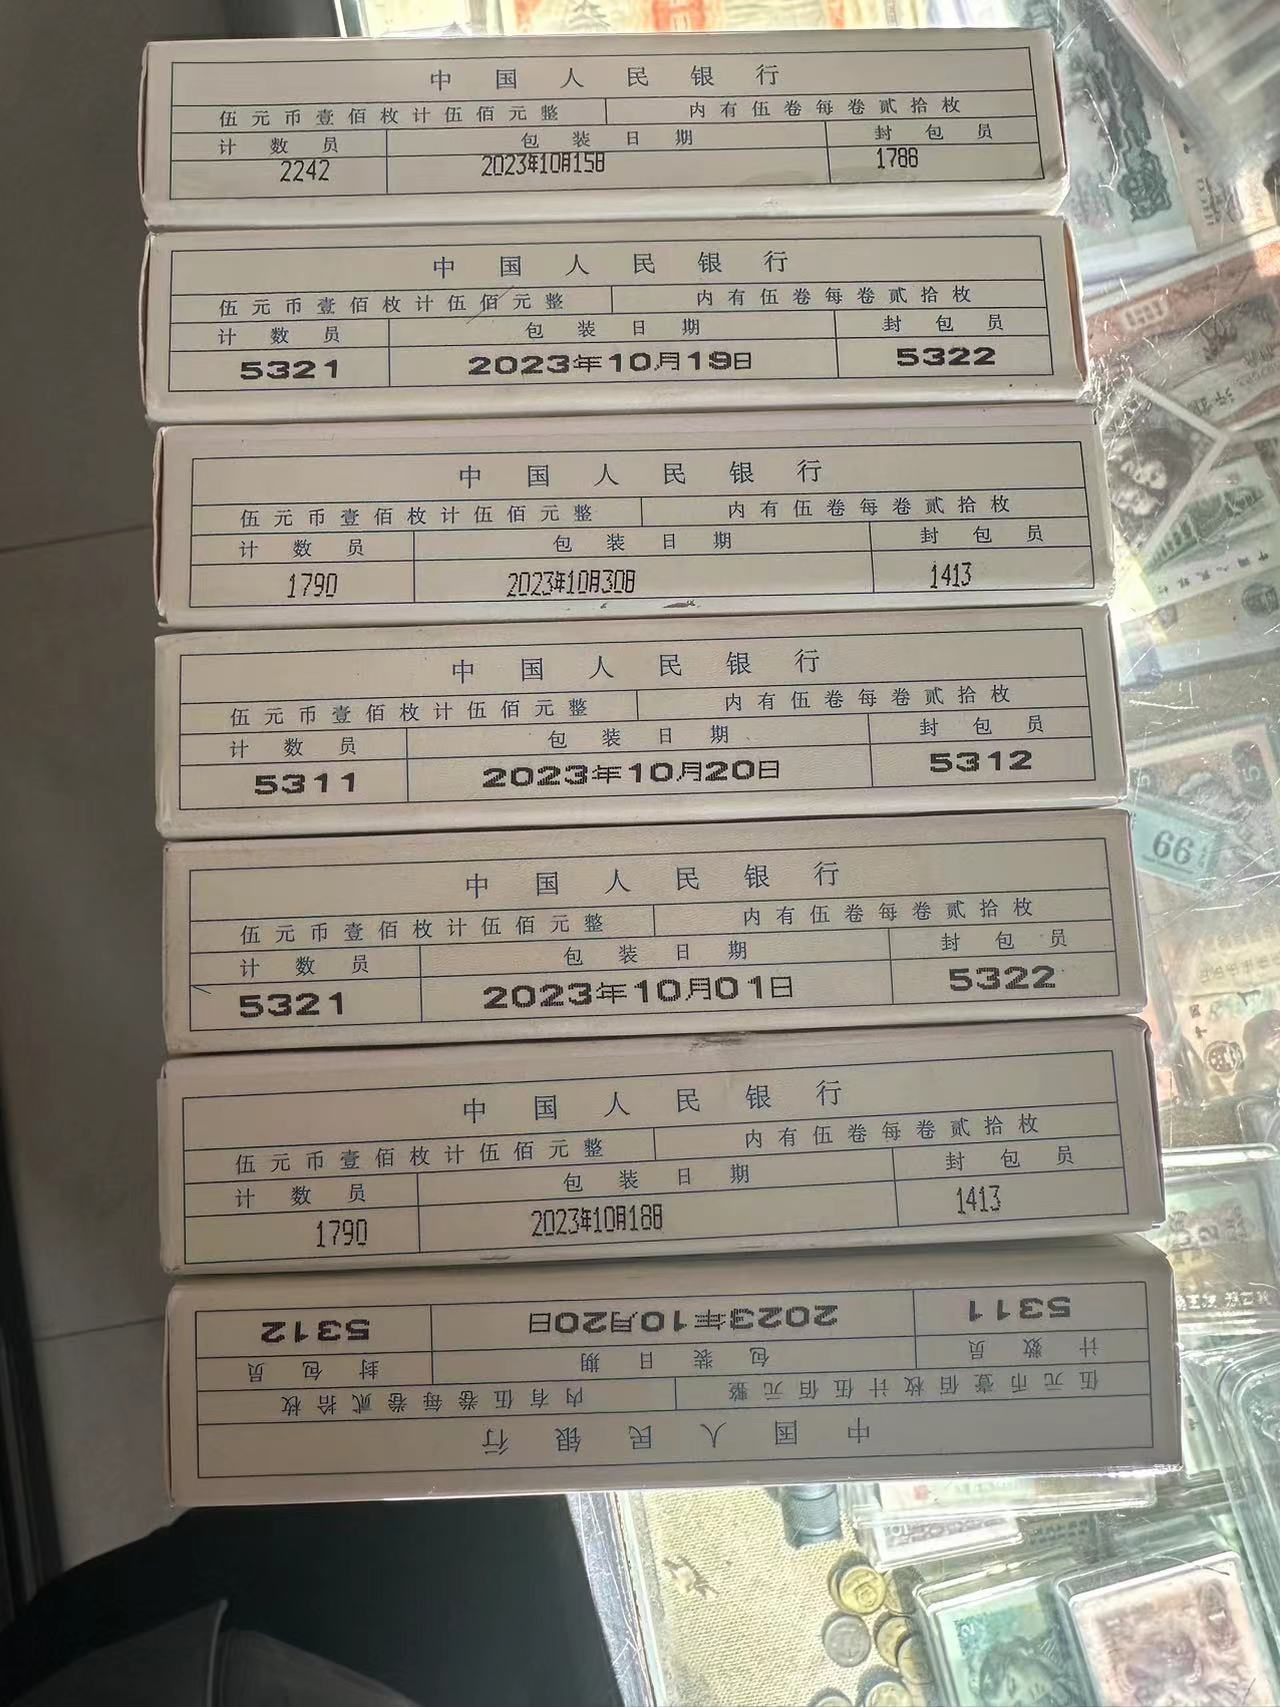 中国人民银行
伍元币壹佰枚计伍佰元整 内有伍卷每卷贰拾枚
计数员 包装日期 封包员
2242 2023年10月15日 1788
中国人民银行
伍元币壹佰枚计伍佰元整 内有伍卷每卷贰拾枚
计数员 包装日期 封包员
5321 2023年10月19日 5322
中国人民银行
伍元币壹佰枚计伍佰元整 内有伍卷每卷贰拾枚
计数员 包装日期 封包员
1790 2023年10月30日 1413
中国人民银行
伍元币壹佰枚计伍佰元整 内有伍卷每卷贰拾枚
计数员 包装日期 封包员
5311 2023年10月20日 5312
中国人民银行
伍元币壹佰枚计伍佰元整 内有伍卷每卷贰拾枚
计数员 包装日期 封包员
5321 2023年10月01日 5322
中国人民银行
伍元币壹佰枚计伍佰元整 内有伍卷每卷贰拾枚
计数员 包装日期 封包员
1790 2023年10月18日 1413
中国人民银行
伍元币壹佰枚计伍佰元整 内有伍卷每卷贰拾枚
计数员 包装日期 封包员
5311 2023年10月20日 5312
99